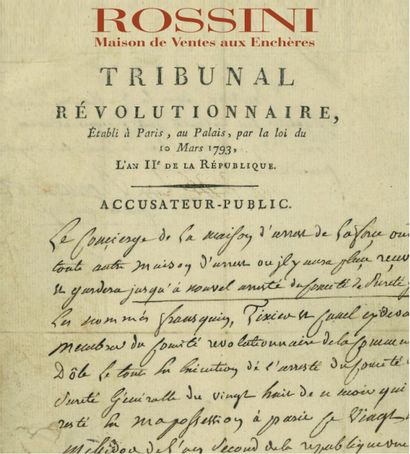 ROSSINI
Maison de Ventes aux Enchères
TRIBUNAL
RÉVOLUTIONNAIRE,
Établi à Paris, au Palais, par la loi du
10 Mars 1793,
L'AN IIe DE LA RÉPUBLIQUE.
ACCUSATEUR-PUBLIC.
Le Concierge de la maison d'arrest de Laforce ou
toute autre maison d'arrest ou il y aura place recevra
et gardera jusqu'à nouvel arresté du Comité de Sureté
Les nommés Tixier et
membres du Comité revolutionnaire de la Commune
Dôle le tout En Execution de L'arresté du Comité
Sureté Generalle du vingt huit de ce mois qui
resté En ma possession à paris Ce Vingt
Messidor de L'an second de la republique